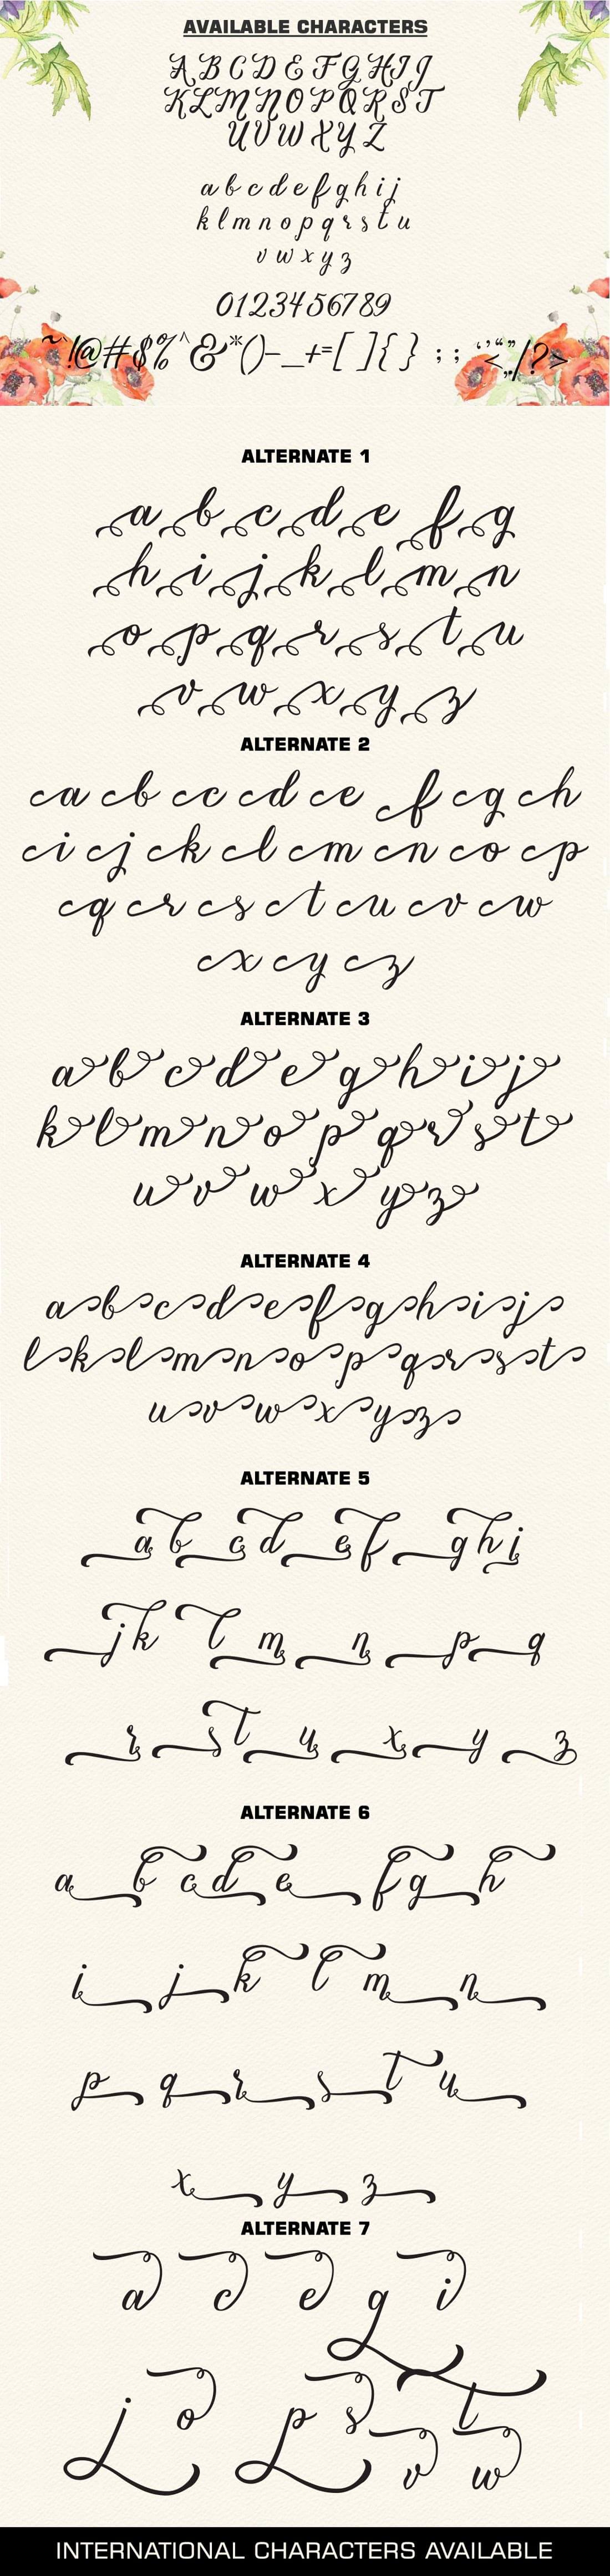 AVAILABLE CHARACTERS
A B C D E F G H I J
K L M N O P Q R S T
U V W X Y Z
a b c d e f g h i j
k l m n o p q r s t u
v w x y z
0 1 2 3 4 5 6 7 8 9
~`!@#$%^&*()-_+=[ ]{ } ; ; ‘’“” <,./?>
ALTERNATE 1
a b c d e f g
h i j k l m n
o p q r s t u
v w x y z
ALTERNATE 2
ca cb cc cd ce cf cg ch
ci cj ck cl cm cn co cp
cq cr cs ct cu cv cw
cx cy cz
ALTERNATE 3
a b c d e g h i j
k l m n o p q r s t
u v w x y z
ALTERNATE 4
a b c d e f g h i j
l k l m n o p q r s t
u v w x y z
ALTERNATE 5
a b c d e f g h i
j k l m n p q
r s t u x y z
ALTERNATE 6
a b c d e f g h
i j k l m n
p q r s t u
x y z
ALTERNATE 7
a c e g i
j o p s t
v w
INTERNATIONAL CHARACTERS AVAILABLE